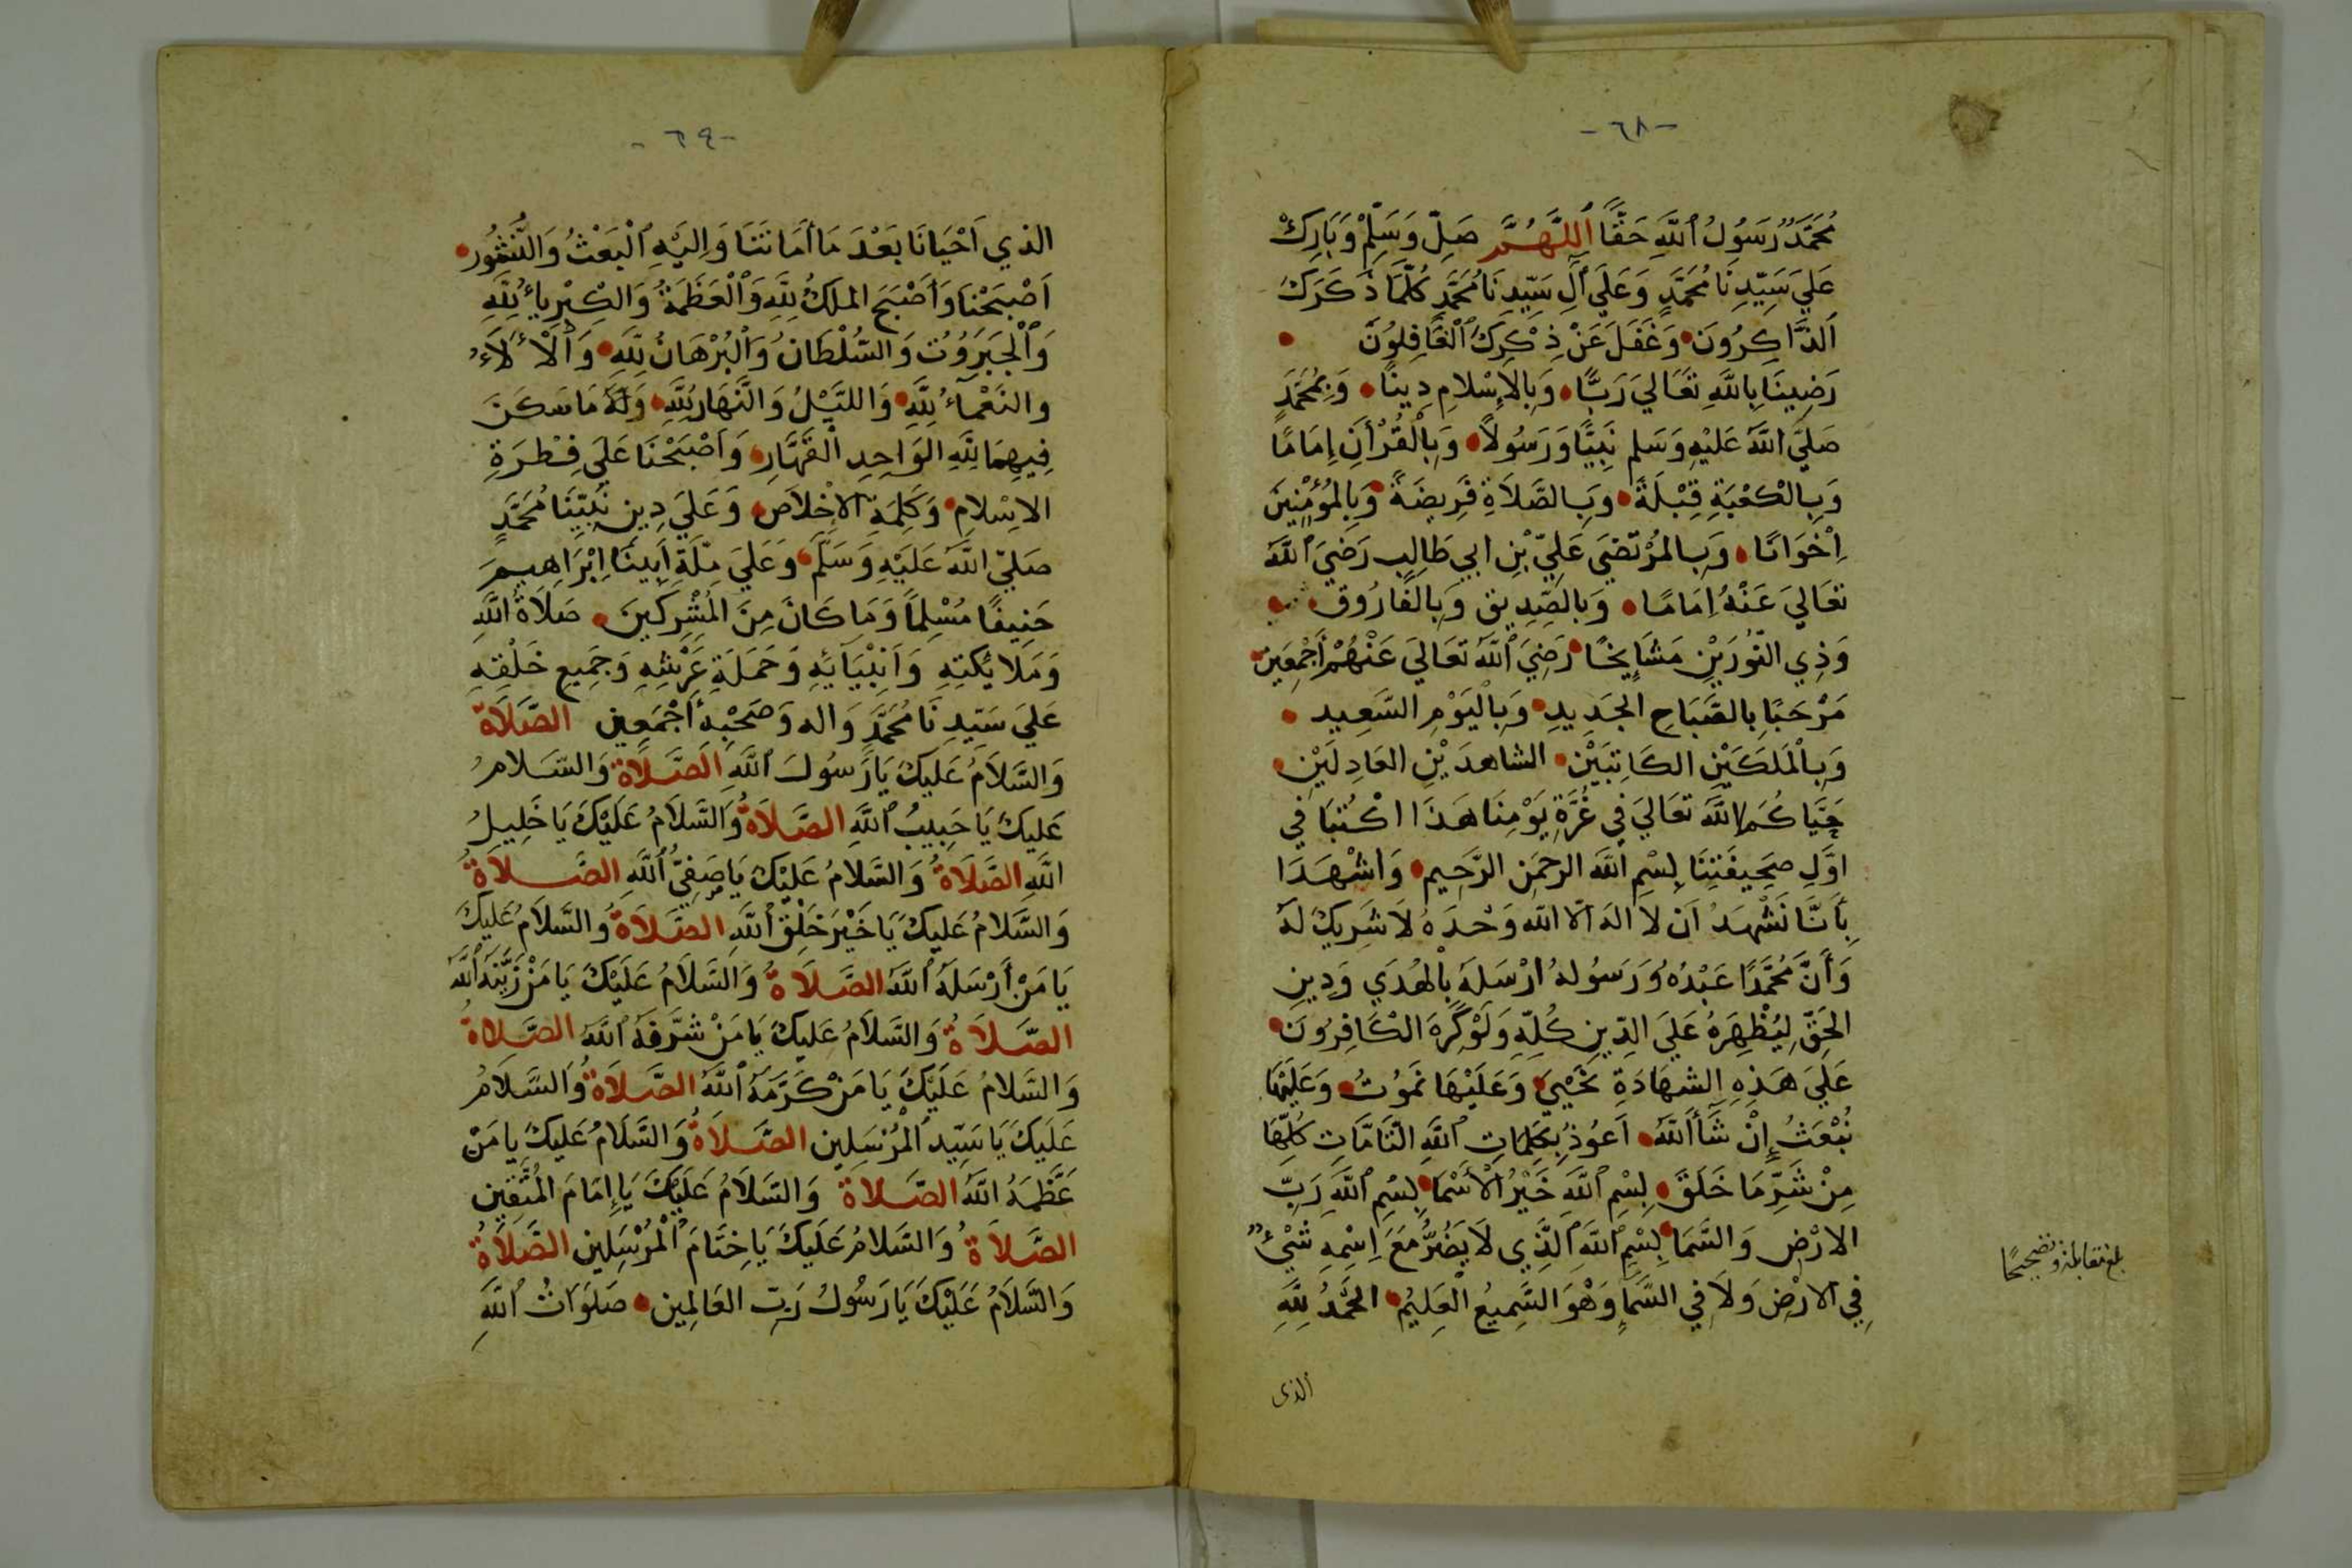 -٦٨-
مُحَمَّدٌ رَسُولُ اللَّهِ حَقًّا اَللَّهُمَّ صَلِّ وَسَلِّمْ وَبَارِكْ
عَلَي سَيِّدِنَا مُحَمَّدٍ وَعَلَي آلِ سَيِّدِنَا مُحَمَّدٍ كُلَّمَا ذَكَرَكَ
اَلذَّاكِرُونَ وَغَفَلَ عَنْ ذِكْرِكَ الْغَافِلُونَ
رَضِينَا بِاللَّهِ تَعَالَي رَبًّا وَبِالاِسْلامِ دِينًا وَبِمُحَمَّدٍ
صَلَّي اللَّهُ عَلَيْهِ وَسَلم نَبِيًّا وَرَسُولاً وَبِالْقُرْآنِ إِمَامًا
وَبِالْكَعْبَةِ قِبْلَةً وَبِالصَّلَاةِ فَرِيضَةً وَبِالْمُؤْمِنِينَ
اِخْوَانًا وَبِالمُرْتَضَى عَلِيّ بْنِ ابي طَالِبٍ رَضِيَ اللَّهُ
تعَالَي عَنْهُ اِمَامًا وَبالصِّدِيقِ وَبِالْفَارُوقِ
وَذِي النُّورَيْنِ مَشَايِخًا رَضِيَ اللَّهُ تَعَالَي عَنْهُمْ أَجْمَعِين
مَرْحَبًا بِالصَّبَاحِ الجَدِيدِ وَبِالْيَوْمِ السَّعِيد
وَبِالْمَلَكَيْنِ الكَاتِبَيْنِ الشاهِدَيْنِ العَادِلَيْنِ
حَيَّاكُمَا اللَّهُ تَعَالَي فِي غُرَّةِ يَوْمِنَا هَذَا اكْتُبَا فِي
اوَّلِ صَحِيفَتِنَا بِسْمِ اللَّهِ الرحمَنِ الرَّحِيم وَاشْهَدَا
بِأَنَّا نَشْهَدُ اَن لا اله الا الله وَحْدَهُ لَا شَرِيكَ لَهُ
وَأَنَّ مُحَمَّدًا عَبْدُهُ وَرَسُولهُ ارْسَلَهُ بِالْهُدَي وَدِينِ
الحَقّ لِيُظْهِرَهُ عَلَي الدِّينِ كُلِّهِ وَلَوْ كَرِهَ الْكَافِرُونَ
عَلَي هَذِهِ الشهَادَةِ نَحْيَي وَعَلَيْهَا نَمُوتُ وَعَلَيْهَا
نُبْعَثُ إِنْ شَآءَ اللَّهُ اَعُوذُ بِكَلِمَاتِ اللَّهِ التَّامَّاتِ كُلِّهَا
مِنْ شَرِّ مَا خَلَقَ بِسْمِ اللَّهِ خَيْرُ الْأَسْمَا بِسْمِ اللَّهِ رَبِّ
الارْضِ وَالسَّمَا بِسْمِ اللَّهِ الَّذِي لَا يَضُرُّ مَعَ اِسْمِهِ شَيْءٌ
فِي الارْضِ وَلَا فِي السَّمَا وَهُوَ السَّمِيعُ الْعَلِيمُ الحَمْدُ لِلَّهِ
بلغ مقابلة وتصحيحًا
الذى
-٦٩-
الذي اَحْيَانَا بَعْدَ مَا أَمَاتَنَا وَاِلَيْهِ الْبَعْثُ وَالنُّشُور
اَصْبَحْنَا وَأَصْبَحَ الملكُ لِلَّهِ وَالْعَظَمَةُ وَالكِبْرِيآءُ لِلَّهِ
وَالْجَبَرُوتُ وَالسُّلْطَانُ وَالْبُرْهَانُ لِلَّهِ وَالْأَلَآءُ
والنَعْمَآءُ لِلَّهِ وَاللَّيْلُ وَالنَّهَارُ لِلَّهِ وَلَهُ مَا سَكَنَ
فِيهِمَا لِلَّهِ الوَاحِدِ الْقَهَّارِ وَأَصْبَحْنَا عَلَي فِطْرَةِ
الاِسْلامِ وَكَلِمَةِ الاِخْلَاصِ وَعَلَي دِينِ نَبِيِّنَا مُحَمَّدٍ
صَلي اللَّهُ عَلَيْهِ وَسَلَّمَ وَعَلَي مِلَّةِ اَبِينَا اِبْرَاهِيمَ
حَنِيفًا مُسْلِمًا وَمَا كَانَ مِنَ الْمُشْرِكِينَ صَلَاةُ اللَّهِ
وَمَلائِكَتِهِ وَاَنْبِيَائِهِ وَحَمَلَةِ عَرْشِهِ وَجَمِيعِ خَلْقِهِ
عَلَي سَيِّدِنَا مُحَمَّدٍ وَاله وَصَحْبِهِ أَجْمَعِين الصَّلَاةُ
وَالسَّلَامُ عَلَيكَ يَا رَسُولَ اللَّهِ الصَّلَاةُ وَالسَّلامُ
عَلَيكَ يَا حَبِيبُ اللَّهِ الصَّلَاةُ وَالسَّلَامُ عَلَيْكَ يَا خَلِيلُ
اللَّهِ الصَّلَاةُ وَالسَّلامُ عَلَيْكَ يَا صَفِيُّ اللَّهِ الصَّلَاةُ
وَالسَّلَامُ عَلَيْكَ يَا خَيْرَ خَلْقِ اللَّهِ الصَّلَاةُ وَالسَّلَامُ عَلَيكَ
يَا مَنْ أَرْسَلَهُ اللَّهُ الصَّلَاةُ وَالسَّلَامُ عَلَيْكَ يَا مَنْ زَيَّنَهُ اللَّهُ
الصَّلَاةُ وَالسَّلَامُ عَلَيكَ يَا مَنْ شَرَّفَهُ اللَّهُ الصَّلَاةُ
وَالسَّلامُ عَلَيْكَ يَا مَنْ كَرَّمَهُ اللَّهُ الصَّلَاةُ وَالسَّلَامُ
عَلَيكَ يَا سَيِّدِ الْمُرْسَلِين الصَّلَاةُ وَالسَّلَامُ عَلَيكَ يا مَنْ
عَظَّمَهُ اللَّهُ الصَّلَاةُ وَالسَّلَامُ عَلَيْكَ يَا إِمَامَ المُتَّقِين
الصَّلَاةُ وَالسَّلامُ عَلَيكَ يَا خِتَامَ الْمُرْسَلِين الصَّلَاةُ
وَالسَّلَامُ عَلَيْكَ يَا رَسُولُ رَبّ العَالَمِين صَلَوَاتُ اللَّهِ